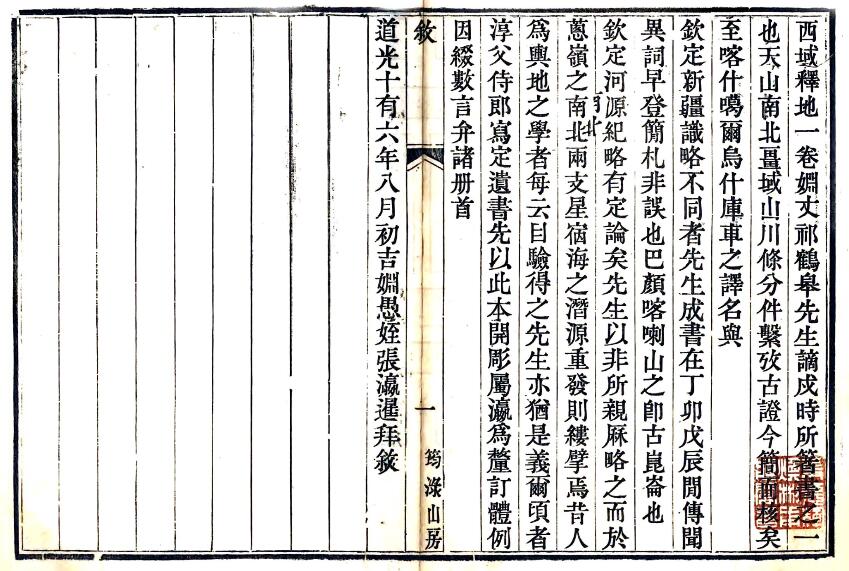 西域釋地一卷嫺丈祁鶴皋先生謫戍時所箸書之一
也天山南北畺域山川條分件繫攷古證今簡而核矣
至喀什噶爾烏什庫車之譯名與
欽定新疆識略不同者先生成書在丁卯戊辰閒傳聞
異詞早登簡札非誤也巴顏喀喇山之卽古崑崙也
欽定河源紀略有定論矣先生以非所親厤略之而於
蔥嶺之南北兩支星宿海之潛源重發則縷擘焉昔人
爲輿地之學者每云目驗得之先生亦猶是義爾頃者
淳父侍郎寫定遺書先以此本開彫屬瀛爲釐訂體例
因綴數言弁諸册首
道光十有六年八月初吉嫺愚姪張瀛暹拜敘
敘
一
筠淥山房